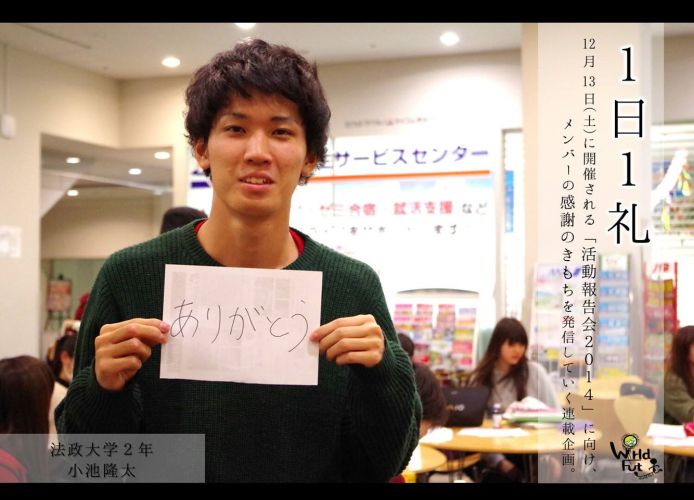 1日1礼
12月13日(土)に開催される「活動報告会2014」に向け、
メンバーの感謝のきもちを発信していく連載企画。
サービスセンター
ゼミ合宿 就活支援 など
ありがとう
法政大学2年
小池隆太
World
Fut